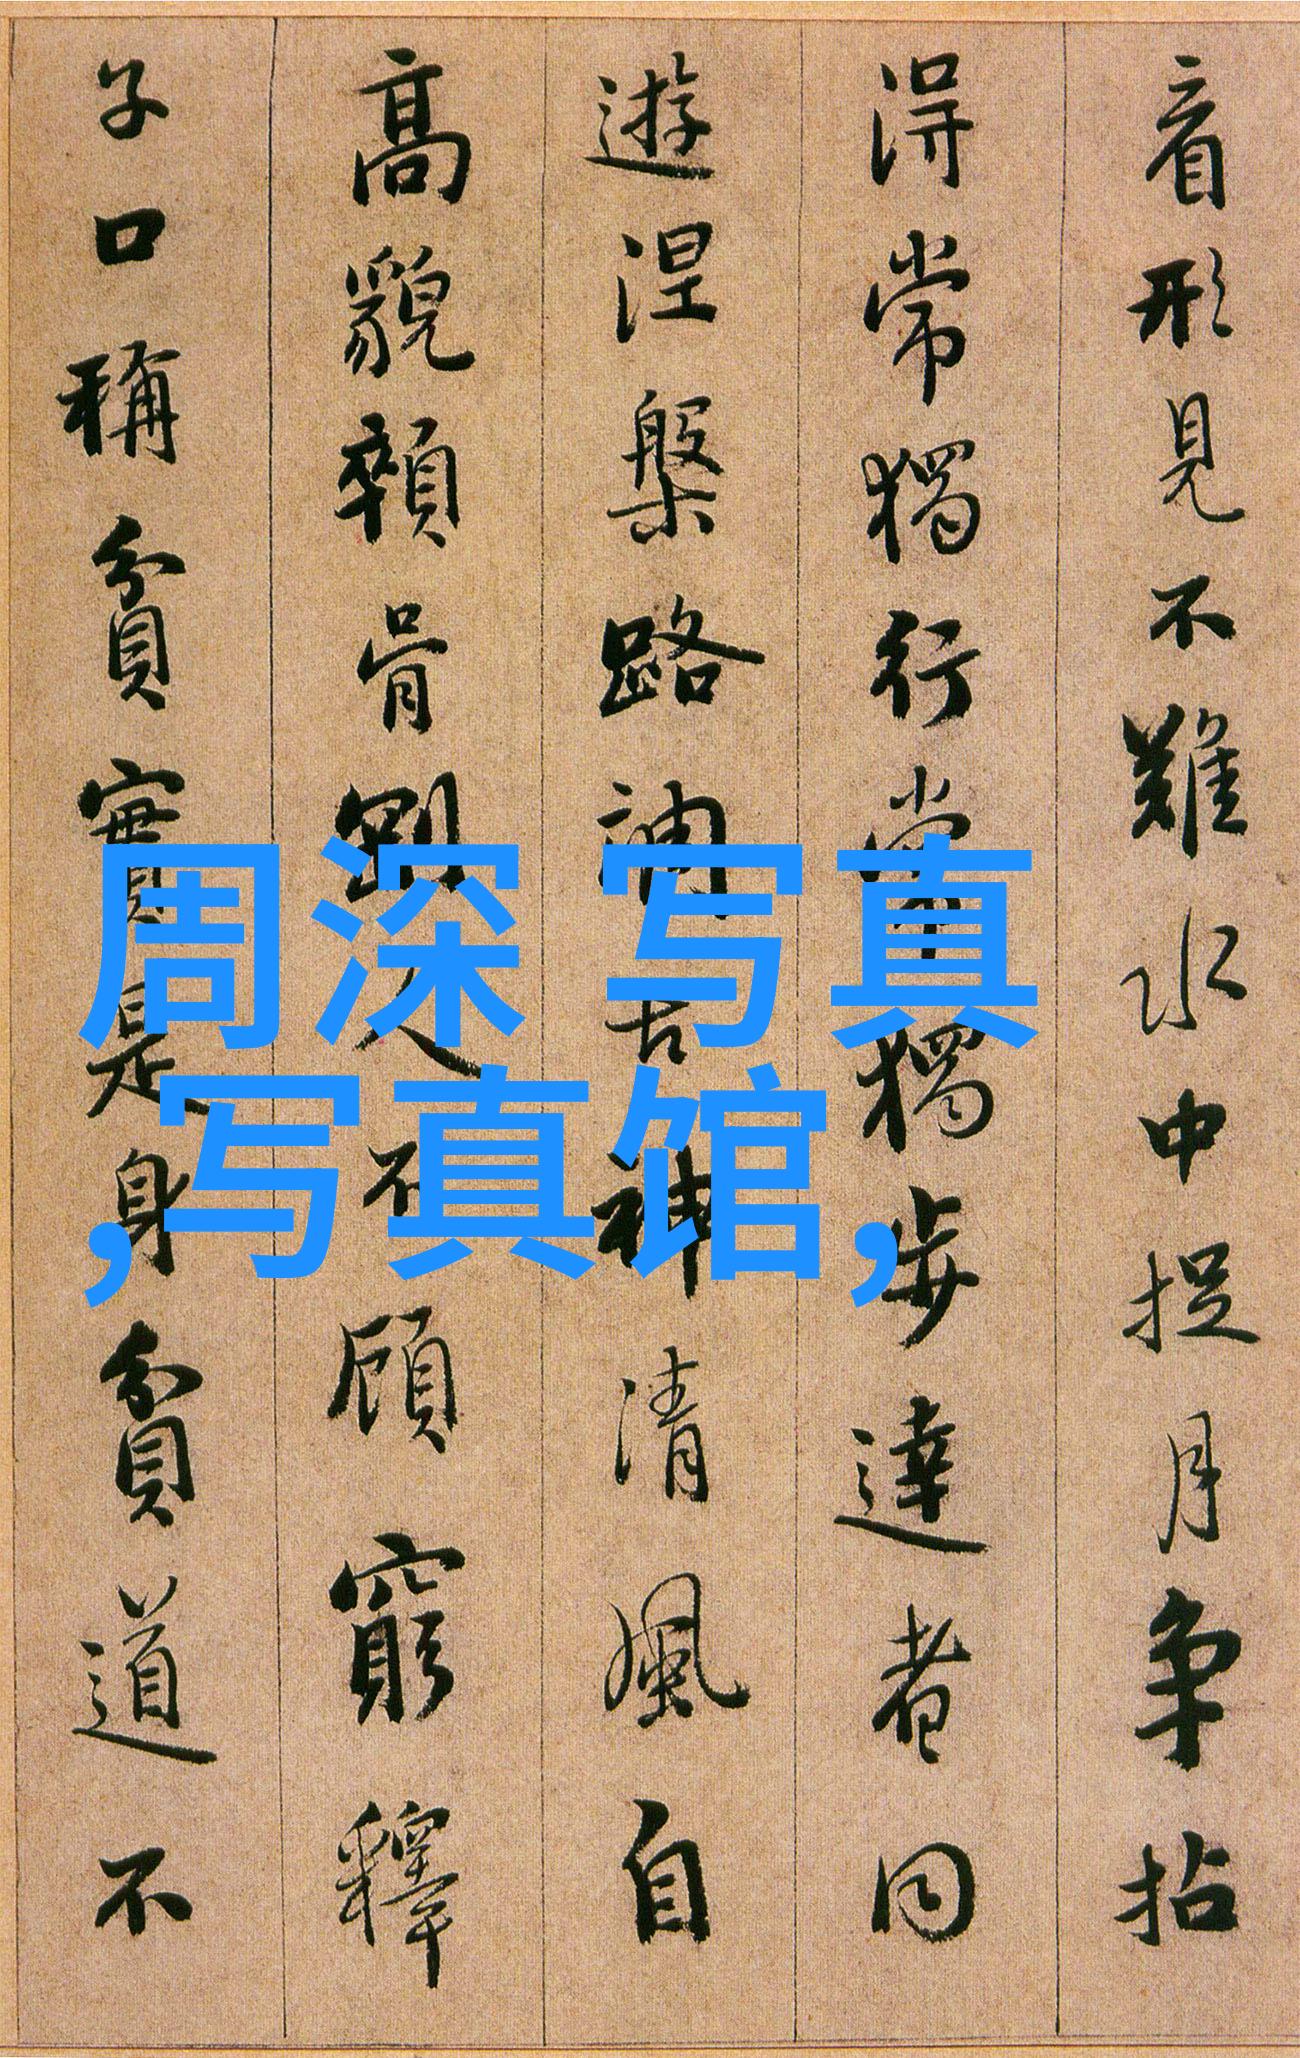 看形見不難水中捉月争拈
得常獨行常獨步達者同
遊涅槃路調古神清風自
高貌顇骨剛人不顧窮釋
子口稱貧實是身貧道不
周深 写真
,写真馆,